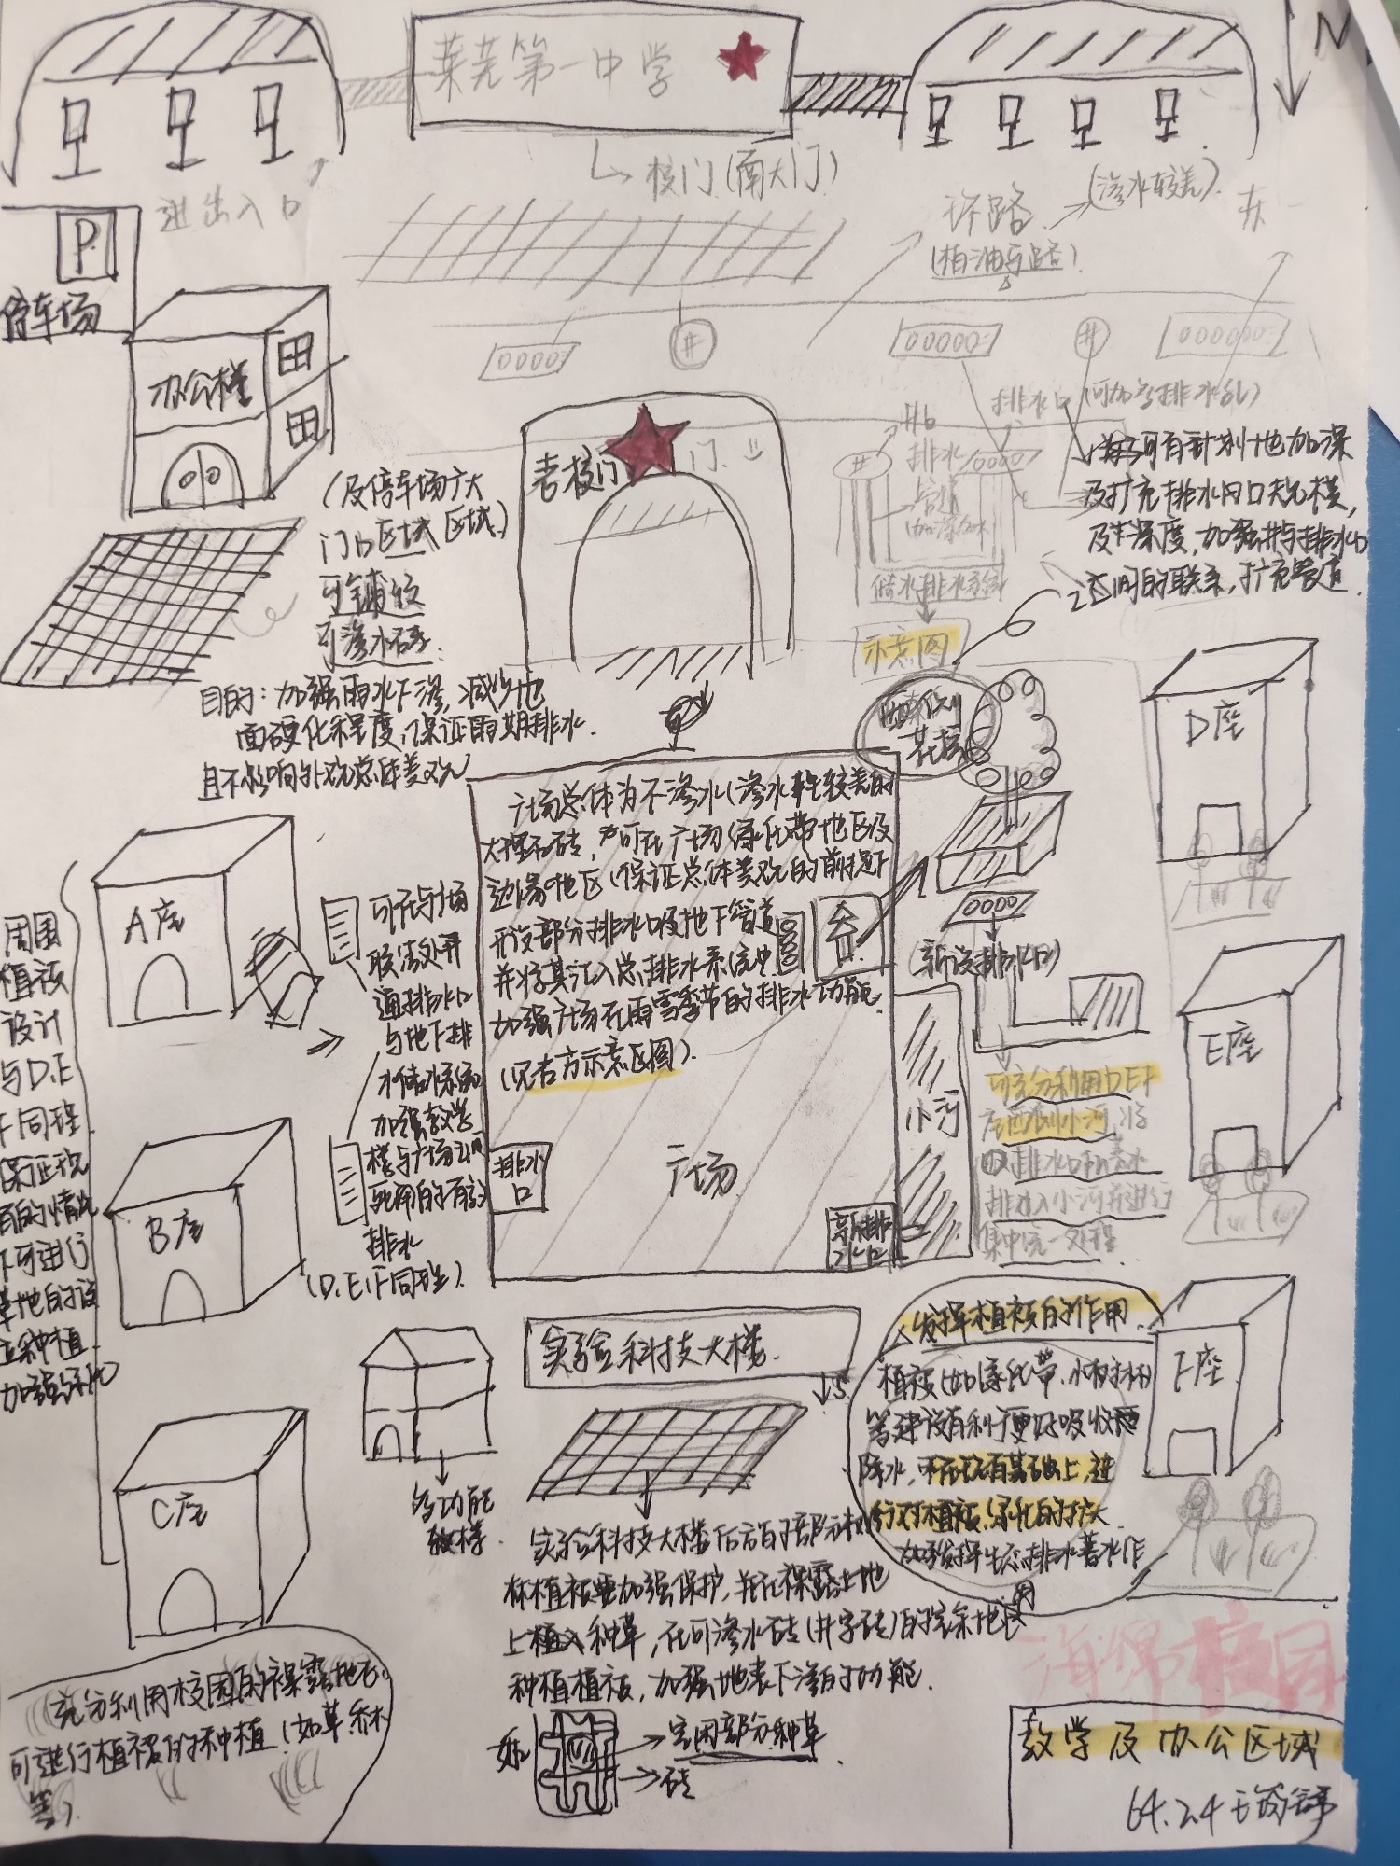 莱芜第一中学
N
校门(南大门)
进出入口
P
停车场
环路
(柏油马路)
(渗水较差)
办公楼
井
井
老校门
门
排水口(可加宽排水孔)
井
排水
管道
储水排水系统
示意图
可有计划地加深
及扩充排水口规模,
及其深度,加强井与排水口
之间的联系,扩充管道.
(及停车场广大
门口区域区域)
可铺设
可渗水砖.
目的:加强雨水下渗,减少地
面硬化程度,保证雨期排水.
且不影响外观总体美观
花坛
D座
广场总体为不渗水(渗水较差的
大理石砖,可在广场绿化带地区及
边缘地区(保证总体美观的前提下
开设部分排水口及地下管道
并将其汇入总排水系统中
加强广场在雨雪季节的排水功能
(见右方示意区图).
排水口
广场
新排水口
小河
新设排水口
A座
可在与广场
联络处开
通排水口
与地下排
水储水系统
加强教学
楼与广场之间
排水
(D.E.F同理).
周围
植被
设计
与D.E
F同理.
B座
加强绿化
E座
可充分利用DEF
座西侧小河,将
排水入小河并进行
集中统一处理
实验科技大楼
S
多功能
教楼.
C座
发挥植被的作用
植被(如绿化带,小树林
等建设有利于更好吸收
除水,在现有基础上,进
行对植被,绿化的扩大
加强发挥生态排水蓄水作
用
F座
实验科技大楼后方的部分树
林植被要加强保护,并在裸露土地
上植入种草,在可渗水砖(井字砖)的空余地区
种植植被,加强地表下渗的功能.
如:
空闲部分种草
砖
充分利用校园的裸露地表
可进行植被的种植(如草.乔木
等)
海绵校园
教学及办公区域
64.24